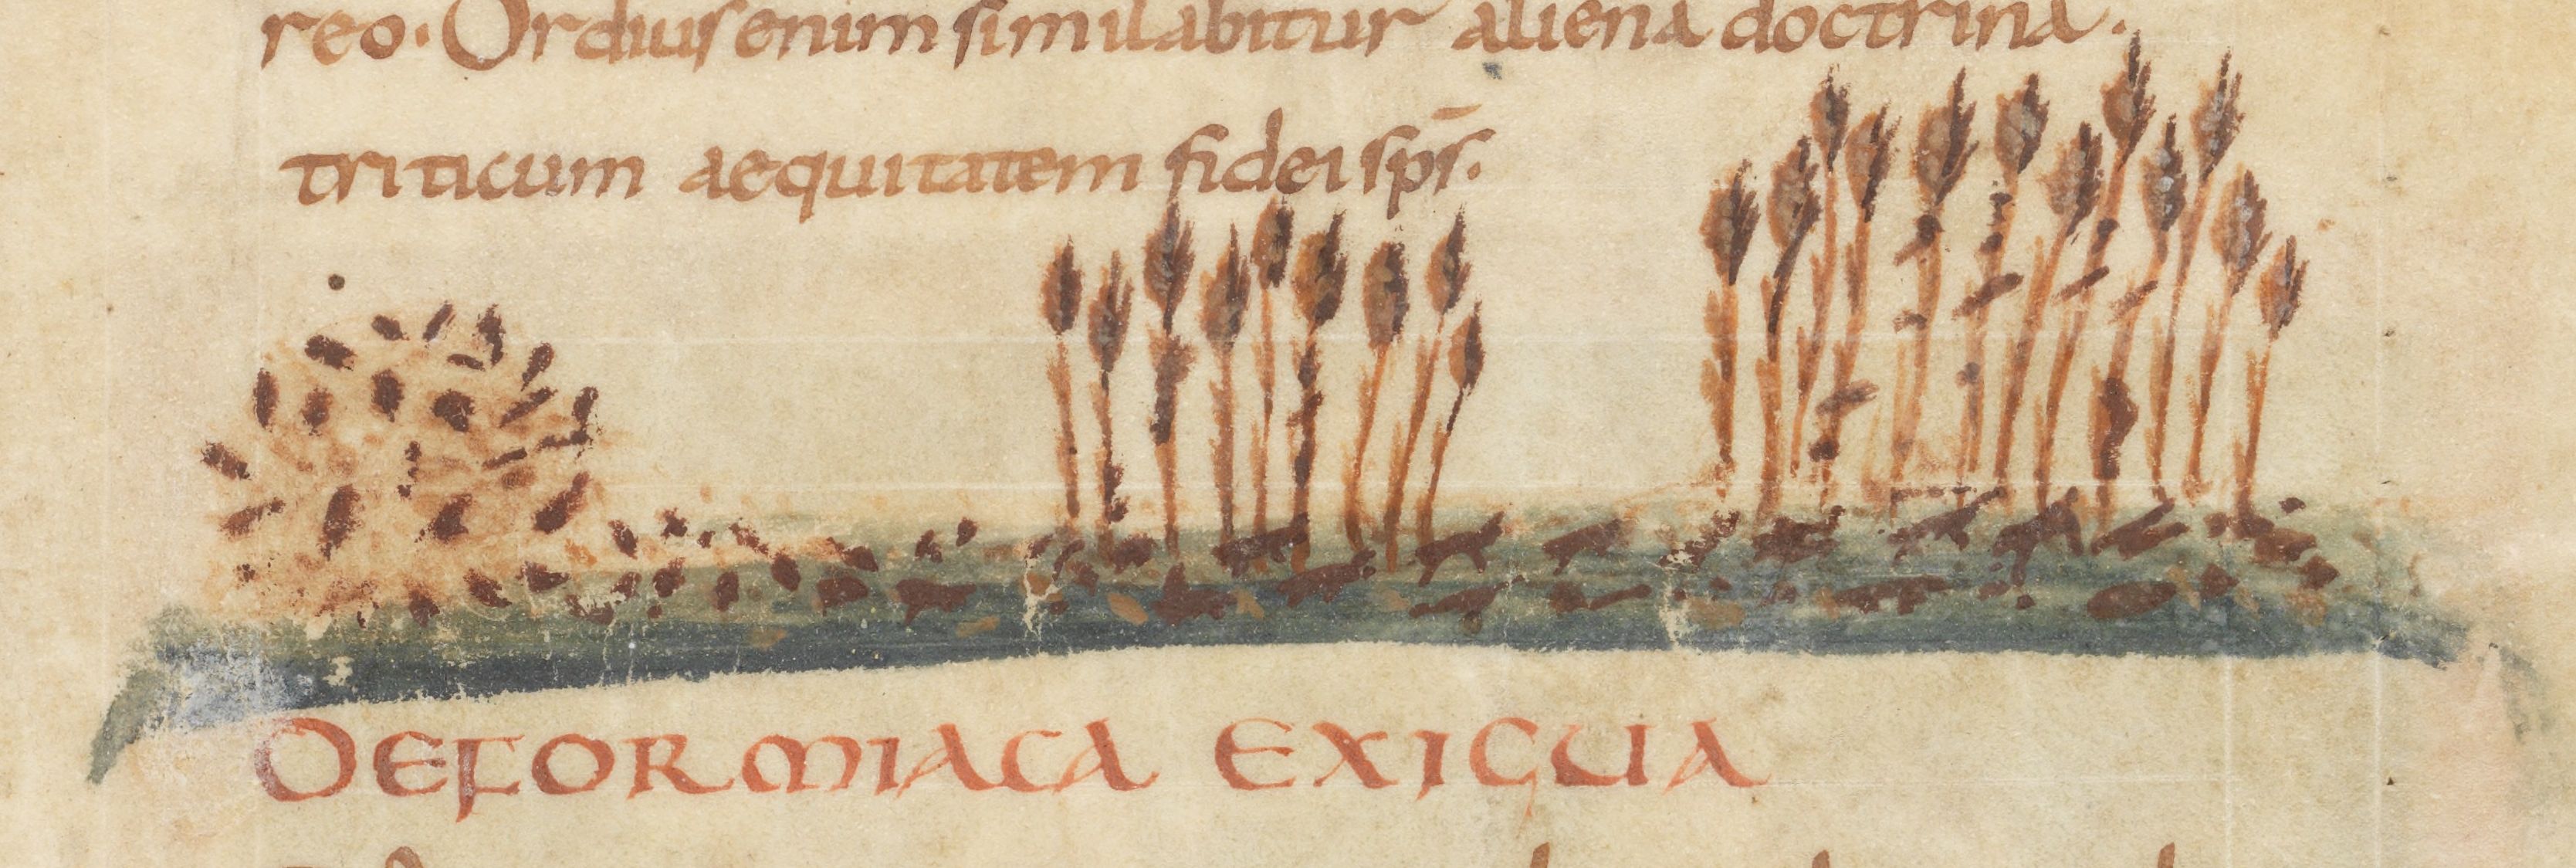 reo· Ordiusenim similabitur aliena doctrina·
triticum aequitatem fidei sp̄s·
DEFORMIACA EXIGUA